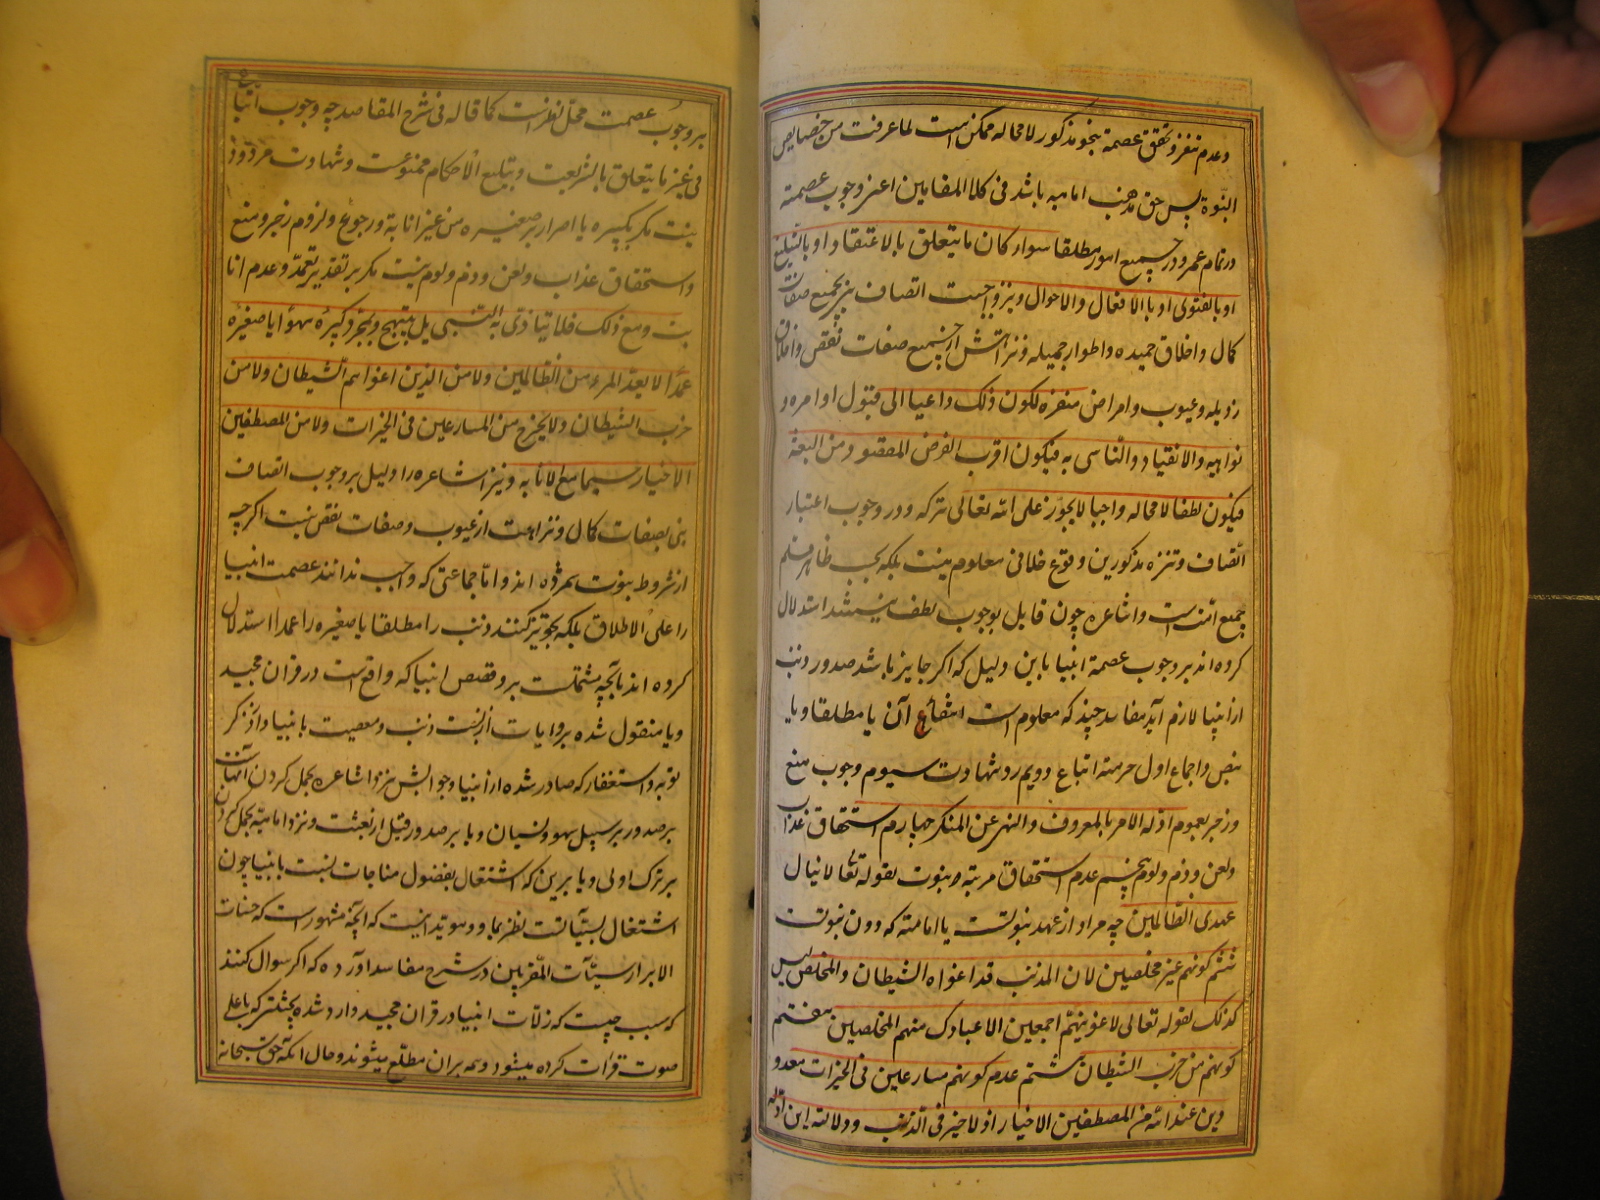 وعدم تنفر و تحقق عصمة بنحو مذکور لا محاله ممکن است لما عرفت من خصایص
النبوة پس حق مذهب امامیه باشد فی کلا المقامین اعنی وجوب عصمته
در تمام عمر و در جمیع امور مطلقا سواء کان ما یتعلق بالاعتقاد او بالتبلیغ
او بالفتوی او بالافعال والاحوال و نیز واجبست اتصاف نبی بجمیع صفات
کمال و اخلاق حمیده و اطوار جمیله و نزاهتش از جمیع صفات نقص و اخلاق
رذیله و عیوب و امراض منفره لکون ذلک داعیا الی قبول اوامره و
نواهیه والانقیاد والتاسی به فیکون اقرب الی الغرض المقصود من البعثة
فیکون لطفا لا محاله واجبا لا یجوز علی الله تعالی ترکه و در وجوب اعتبار
اتصاف و تنزه مذکورین وقوع خلافی معلوم نیست بلکه بحسب ظاهر مسلم
جمیع امت است و اشاعره چون قایل بوجوب لطف نیستند استدلال
کرده اند بر وجوب عصمة انبیا باین دلیل که اگر جایز باشد صدور ذنب
از انبیا لازم آید مفاسد چند که معلوم است انتفاء آن یا مطلقا و یا
بنص و اجماع اول حرمة اتباع دویم رد شهادت سیوم وجوب منع
و زجر بعموم ادله الامر بالمعروف والنهی عن المنکر چهارم استحقاق عذاب
و لعن و ذم و لوم پنجم عدم استحقاق مرتبه نبوت لقوله تعالی لا ینال
عهدی الظالمین چه مراد از عهد نبوتست یا امامة که دون نبوت
ششم کونهم غیر مخلصین لان المذنب قد اغواه الشیطان والمخلص لیس
کذلک لقوله تعالی لاغوینهم اجمعین الا عبادک منهم المخلصین هفتم
کونهم من حزب الشیطان هشتم عدم کونهم مسارعین فی الخیرات معدو
دین عند الله من المصطفین الاخیار اذ لا خیر فی الذنب و دلالت این ادله
بر وجوب عصمت محل نظر است کما قاله فی شرح المقاصد چه وجوب اتباع
فی غیر ما یتعلق بالشریعت و تبلیغ الاحکام ممنوعست و شهادت مردود
نیست مگر بکبیره یا اصرار بر صغیره من غیر انابة و رجوع و لزوم زجر و منع
و استحقاق عذاب و لعن و ذم و لوم نیست مگر بر تقدیر تعمد و عدم انا
بت و مع ذلک فلا یتاذی به النبی بل یبتهج و بمجرد کبیرة سهوا یا صغیره
عمدا لا یعد المرء من الظالمین ولا من الذین اغواهم الشیطان ولا من
حزب الشیطان ولا یخرج من المسارعین فی الخیرات ولا من المصطفین
الاخیار سیما مع الانابه و نیز اشاعره را دلیل بر وجوب اتصاف
نبی بصفات کمال و نزاهت از عیوب و صفات نقص نیست اگرچه
از شروط نبوت شمرده اند و اما جماعتی که واجب ندانند عصمت انبیا
را علی الاطلاق بلکه تجویز کنند ذنب را مطلقا یا صغیره را عمدا استدلال
کرده اند بآنچه مشتملست بر و قصص انبیا که واقع است در قران مجید
و یا منقول شده بروایات از نسبت ذنب و معصیت بانبیا و از ذکر
توبه و استغفار که صادر شده از انبیا و جوابش نزد اشاعره بحمل کردن آنهاست
بر صدور بر سبیل سهو و نسیان و یا بر صدور قبل از بعثت و نزد امامیه بحمل کردن
بر ترک اولی و یا بر این که اشتغال بفضول مناجات نسبت بانبیا چون
اشتغال بسیآتست نظر بما و موید اینست که آنچه مشهور است که حسنات
الابرار سیئات المقربین در شرح مقاصد آورده که اگر سوال کنند
که سبب چیست که زلات انبیا در قران مجید وارد شده بحیثیتی که باعلی
صوت قرائت کرده میشود و همه بران مطلع میشوند و حال آنکه حق سبحانه